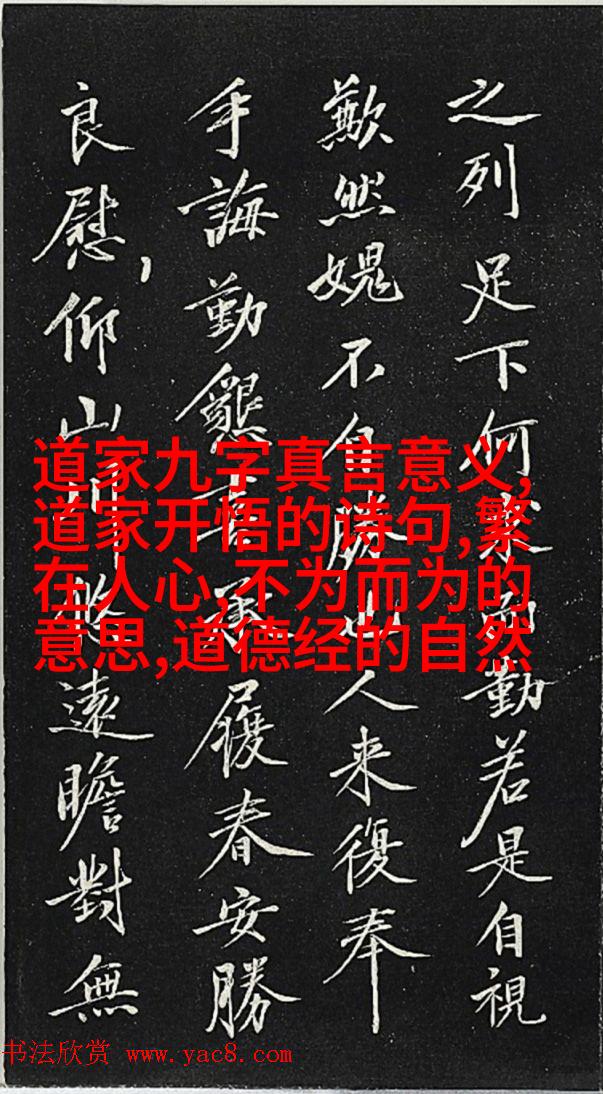 之列足下何求而勤若是自視
歉然媿不自勝山人来復奉
手誨勤懇履春安勝
良慰,仰山川悠遠瞻對無
道家九字真言意义,
道家开悟的诗句,繁
在人心,不为而为的
意思,道德经的自然
书法欣赏 www.yac8.com